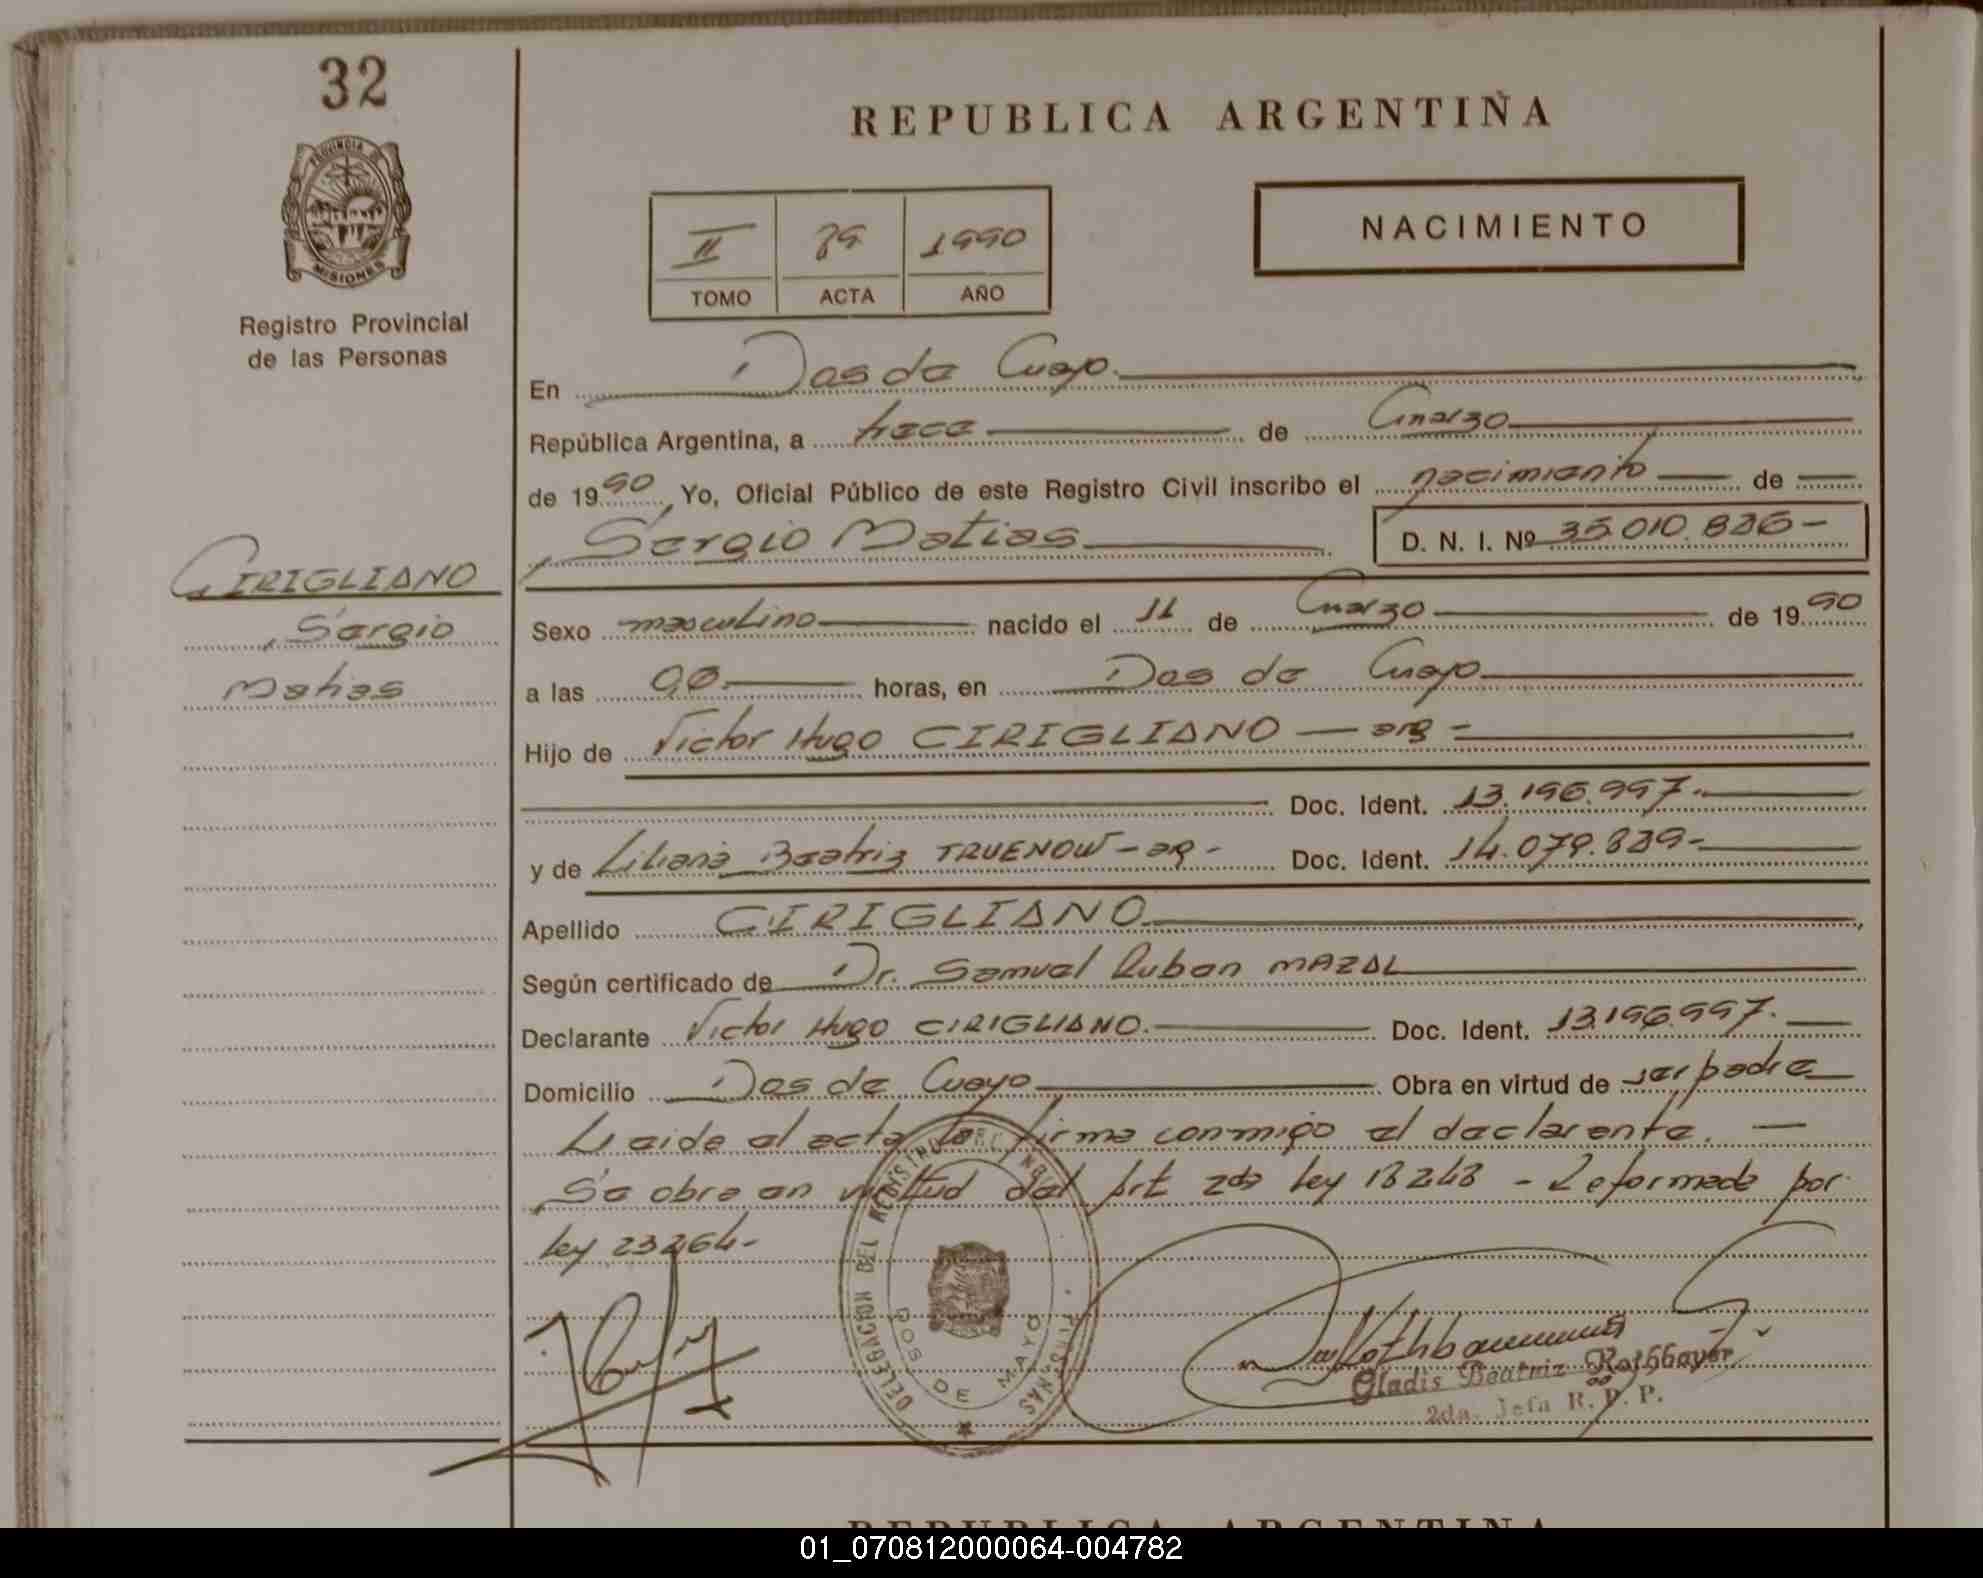 32
PROVINCIA DE
MISIONES
Registro Provincial
de las Personas
REPUBLICA ARGENTINA
NACIMIENTO
II 89 1990
TOMO ACTA AÑO
En Dos de Mayo
República Argentina, a trece de marzo
de 1990, Yo, Oficial Público de este Registro Civil inscribo el nacimiento de
Sergio Matias D. N. I. Nº 35.010.826-
CIRIGLIANO
Sergio
Matias
Sexo masculino nacido el 11 de marzo de 1990
a las horas, en Dos de Mayo
Hijo de Victor Hugo CIRIGLIANO — arg -
Doc. Ident. 13.196.997.
y de Liliana Beatriz TRUENOW - arg - Doc. Ident. 14.079.839-
Apellido CIRIGLIANO
Según certificado de Dr. Samuel Ruben MAZAL
Declarante Victor Hugo CIRIGLIANO. Doc. Ident. 13.196.997.
Domicilio Dos de Mayo Obra en virtud de ser padre
Leida el acta la firma conmigo el declarante. —
Se obra en virtud del Art 2do ley 18248 - Reformada por
ley 23264-
DELEGACION DEL REGISTRO DE LAS PERSONAS
DOS DE MAYO
Gladis Beatriz Rothbayer
2da. Jefa R. P. P.
REPUBLICA ARGENTINA
01_070812000064-004782